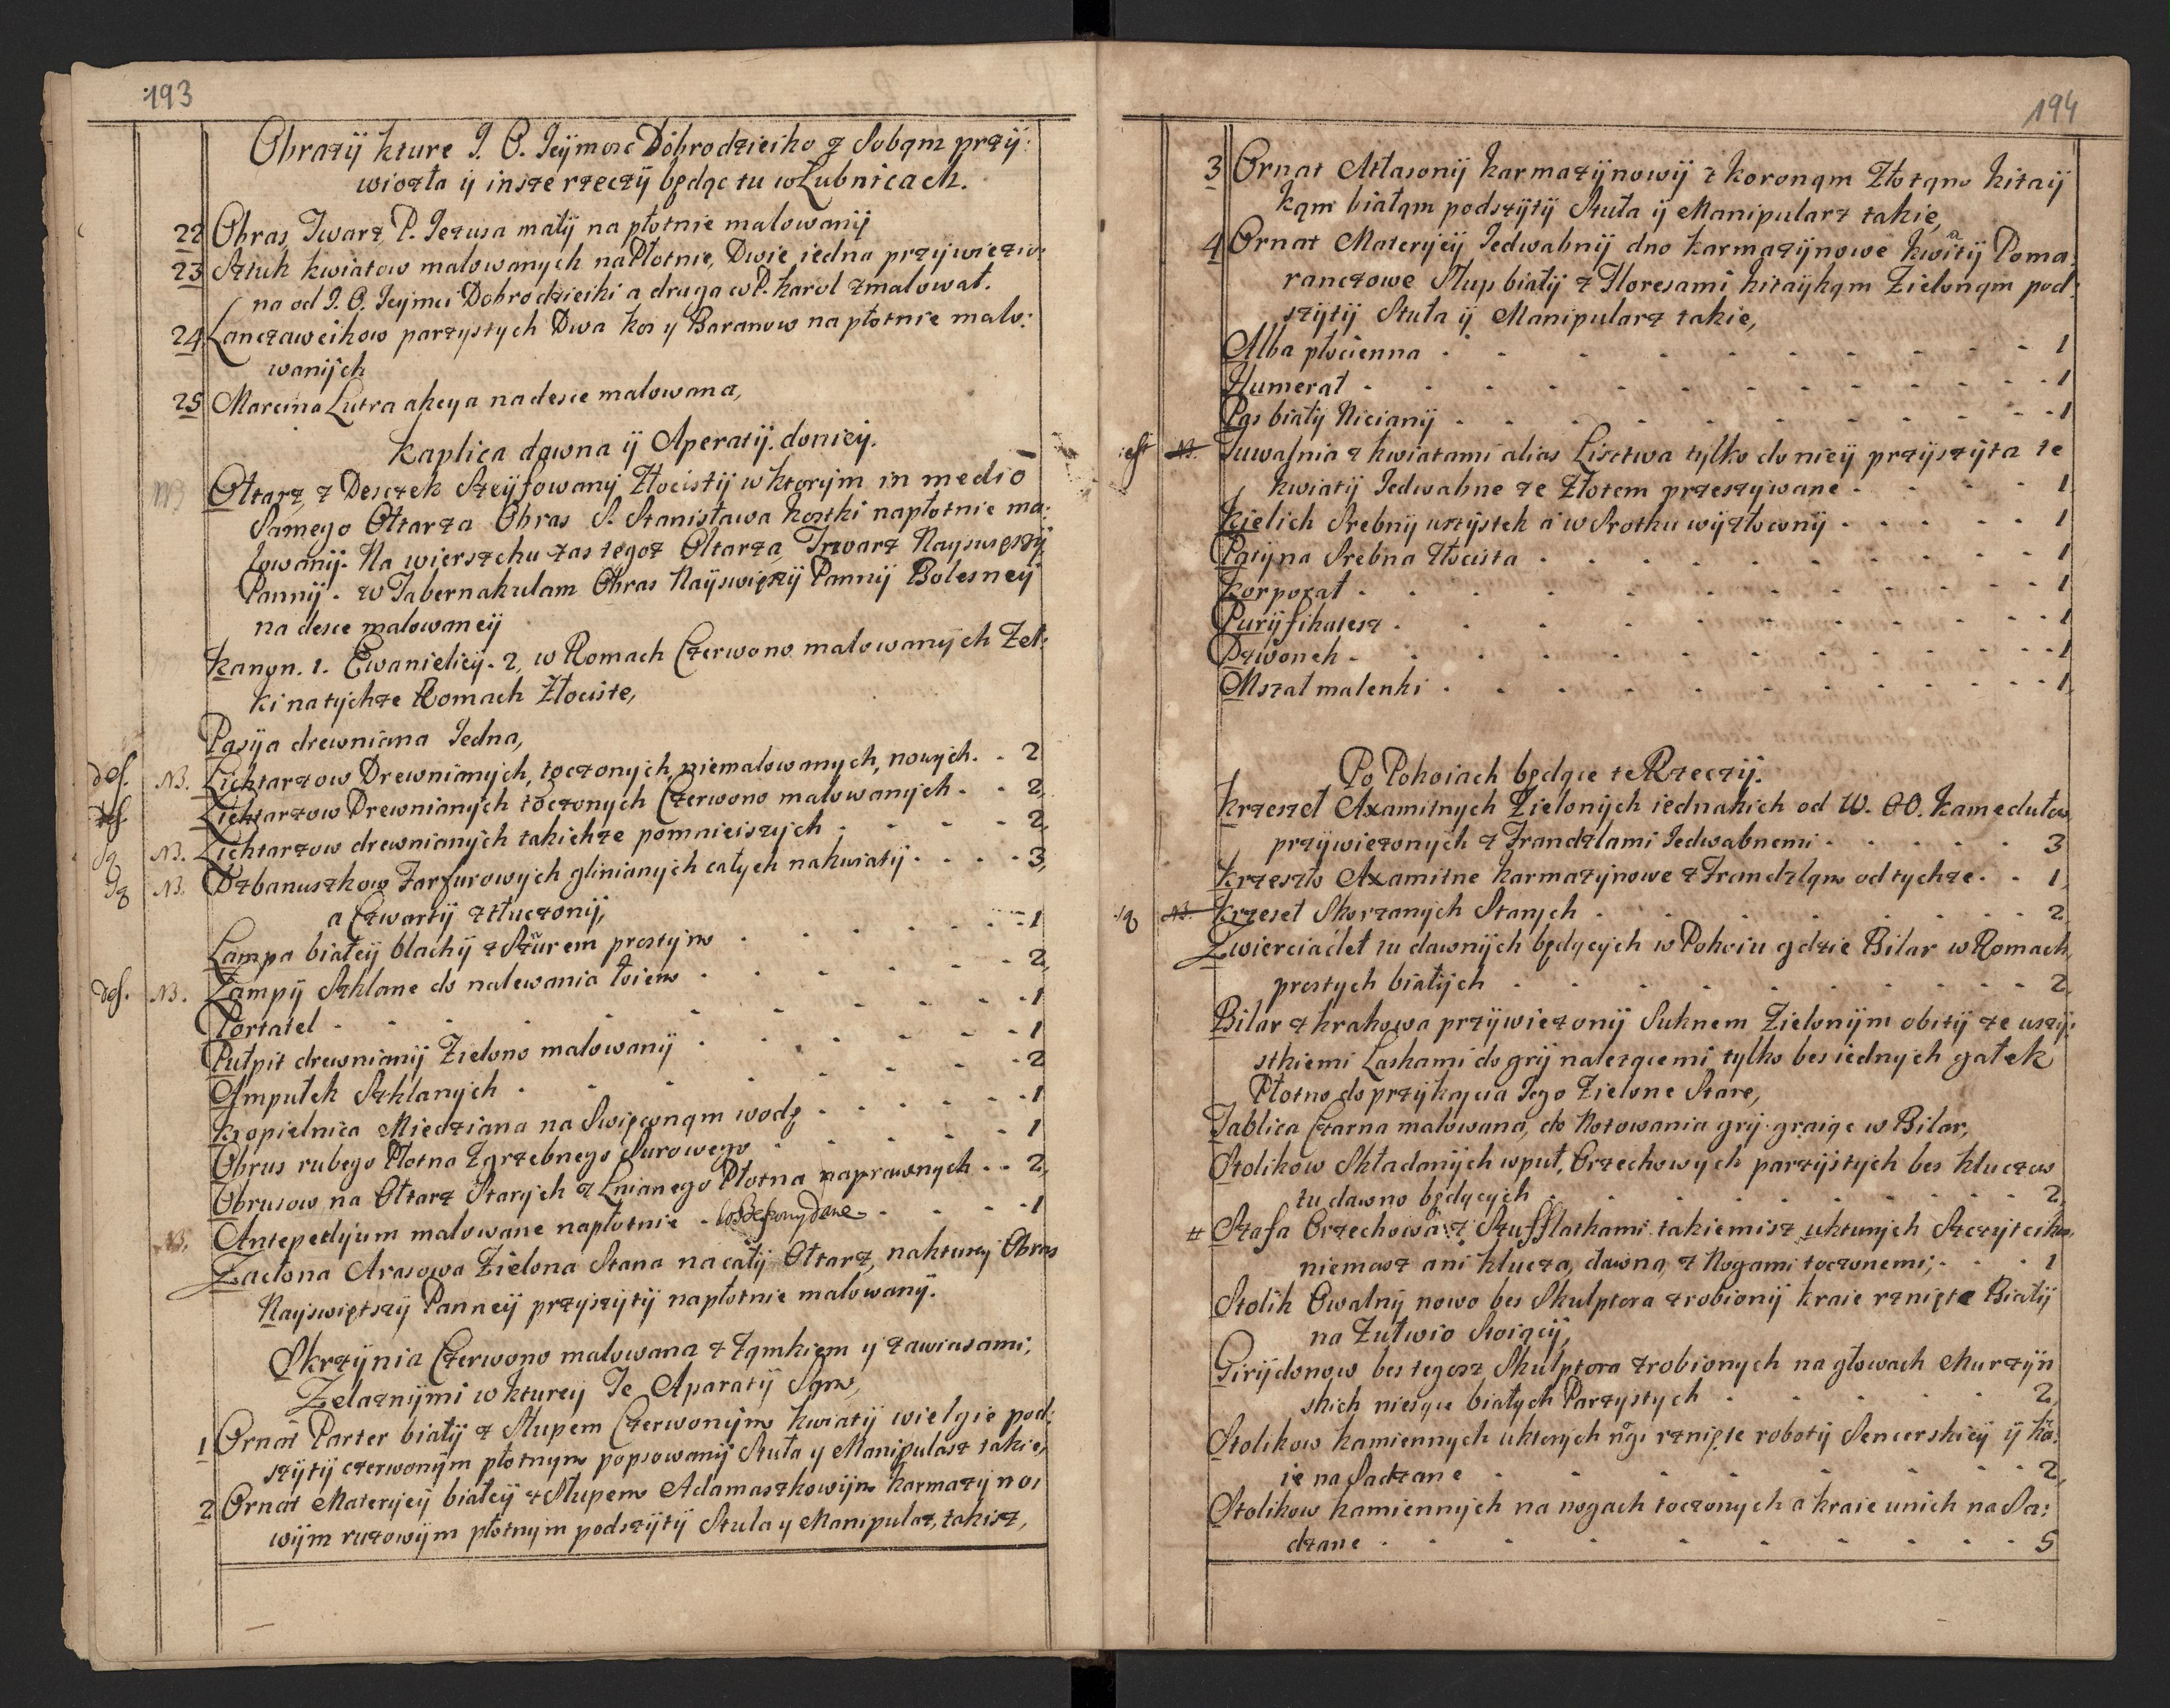 193
Obrazÿ kture J. O. Jeÿmosć Dobrodzieiko z Sobąm przÿ:
wiozła ÿ insze rzeczÿ będąc tu w Łubnicach.
22 Obras, Twarz, P. Jezusa małÿ na płotnie malowanÿ
23 Sztuk kwiatow malowanych na Płotnie, Dwie, iedna przÿwiezio:
na od J. O. Jeÿmci Dobrodzieiki a druga co P. Karol zmalował.
24 Lanczaweikow parzystych Dwa Koz y Baranow na płotnie malo:
wanÿch
25 Marcina Lutra akeya na desce malowana,
Kaplica dawna ÿ Aperatÿ doniey.
NB Ołtarz z Desczek Szeÿfowanÿ Złocistÿ w ktorÿm in medio
Samego Ołtarza Obras S. Stanisława Kostki na płotnie ma:
lowanÿ. Na wierszchu zas tegoz Ołtarza, Twarz Nayswęszÿ
Pannÿ. w Tabernakulam Obras Naÿswięzÿ Pannÿ Bolesneÿ
na desce malowaneÿ
Kanon. 1. Ewanieliey. 2, w Romach Czerwono malowanÿch Zel:
ki na tychze Romach Złociste,
Pasÿa drewniana Jedna,
def. NB. Lichtarzow Drewnianÿch, toczonÿch, niemalowanych, nowÿch. - 2
def. Lichtarzow Drewnianÿch toczonÿch Czerwono malowanÿch - - 2,
są NB. Lichtarzow drewnianÿch takichze pomnieiszÿch - - - - 2,
są NB. Dzbanuszkow Farfurowÿch glinianÿch całÿch na kwiatÿ - - - 3,
a Czwartÿ ztłuczonÿ,
Lampa białeÿ blachÿ z Sznurem prostÿm - - - - - 1
def. NB. Lampÿ Szklane do nalewania łoiem - - - - - 2,
Portatel - - - - - - - - - 1
Pulpit drewnianÿ Zielono malowanÿ - - - - - 1
Ampułek Szklanÿch - - - - - - - 2
Kropielnica Miedziana na Swięconąm wodę - - - - - 1
Obrus rubego Płotna Zgrzebnego Surowego - - - - 1
Obrusow na Ołtarz Starÿch z Lnianego Płotna naprawnÿch - - 2,
NB. Antepedÿum malowane na płotnie - - - - 1
Zasłona Arasowa Zielona Stara na całÿ Ołtarz, na kturey Obras
Nayswiętszÿ Panneÿ przyszÿtÿ na płotnie malowanÿ.
Skrzÿnia Czerwono malowana z Ząmkiem y zawiasami,
Zelaznÿmi w kturey Te Aparatÿ Sąm,
1 Ornat Parter białÿ z Słupem Czerwonÿm kwiatÿ wielgie pod:
szÿtÿ czerwonÿm płotnÿm popsowanÿ Stuła y Manipularz takie,
2 Ornat Materyeÿ białeÿ z Słupem Adamaszkowÿm Karmazÿno:
wÿm ruzowÿm płotnÿm podszÿtÿ Stuła y Manipularz, takisz,
194
3 Ornat Atłasonÿ Karmazÿnowÿ z Koronąm Złotąm Kitaÿ
kąm białąm podszÿtÿ Stuła ÿ Manipularz takie,
4 Ornat Materyeÿ Jedwabnÿ dno Karmazÿnowe Kwiatÿ Poma:
ranczowe Słup białÿ z Floresami Kitaÿkąm Zielonąm pod:
szÿtÿ Stuła ÿ Manipularz takie,
Alba płocienna - - - - - - - - 1
Humerał - - - - - - - - - 1
Pas białÿ Nicianÿ - - - - - - - - 1
iest NB. Tuwalnia z kwiatami alias Lisztwa tylko do nieÿ przÿszÿta te
kwiatÿ Jedwabne ze Złotem przeszÿwane - - - - 1,
Kielich Srebnÿ wszÿstek a w Srotku wÿzłoconÿ - - - - - 1
Patÿna Srebna Złocista - - - - - - - 1
Korporał - - - - - - - - - 1
Purÿfikatesz - - - - - - - - - 1
Dzwonek - - - - - - - - - 1
Mszał malenki - - - - - - - - 1,
Po Pokoiach będące te Rzeczÿ.
Krzeszeł Axamitnych Zielonÿch iednakich od W. OO. Kamedułow
przÿwiezonÿch z Frandzlami Jedwabnemi - - - - - 3
Krzeszło Axamitne Karmazÿnowe z Frandzląm od tychze - - 1,
są NB. Krzeseł Skorzanÿch Starÿch - - - - - - - 2
Zwierciádeł tu dawnÿch będącÿch w Pokoiu gdzie Bilar w Romach
prostÿch białÿch - - - - - - - - 2,
Bilar z Krakowa przÿwiezonÿ Suknem Zielonÿm obitÿ ze wszÿ:
stkiemi Laskami do grÿ nalezącemi tylko bes iednÿch gałek
Płotno do przÿkrÿcia Jego Zielone Stare,
Tablica Czarna malowana, do Notowania grÿ graiąc w Bilar,
Stolikow Składanÿch w puł, Orzechowÿch parzÿstÿch bes kluczow
tu dawno będącÿch - - - - - - - - 2,
# Szafa Orzechowa z Szufflatkami takiemisz ukturÿch Szczÿtcika
niemasz ani klucza, dawna z Nogami toczonemi, - - - 1
Stolik Owalnÿ nowo bes Skulptora zrobionÿ kraie rznięte Białÿ
na Zułwio Stoiącÿ,
Girÿdonow bes tegosz Skulptora zrobionych na głowach Murzÿn
skich niesące białych Parzystych - - - - - 2,
Stolikow kamiennÿch uktorych nogi rznięte robotÿ Sencerskieÿ ÿ kra:
ie na Sadzane - - - - - - - 2,
Stolikow kamiennÿch na nogach toczonÿch a kraie unich na Sa:
dzane - - - - - - - - 5